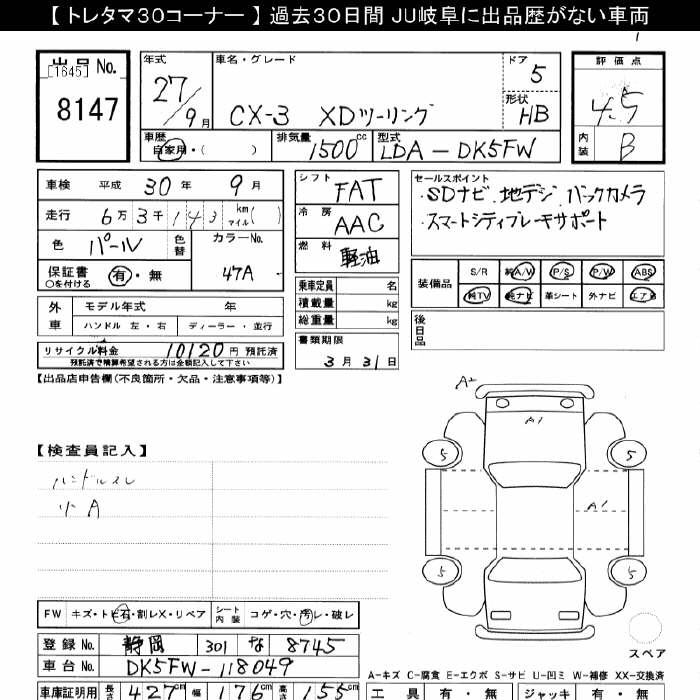 【トレタマ30コーナー】過去30日間 JU岐阜に出品歴がない車両
出品No.
[1645]
8147
年式 27/9月
車名・グレード CX-3 XDツーリング
ドア 5
形状 HB
評価点 4.5
内装 B
車歴 自家用・( )
排気量 1500cc
型式 LDA-DK5FW
車検 平成 30年 9月
走行 6万3千143 km マイル( )
色 パール 色替
カラーNo. 47A
保証書 ○を付ける 有・無
外車 モデル年式 年
ハンドル 左・右 ディーラー・並行
リサイクル料金 10120円預託済
預託済で精算希望される方は金額記入して下さい
シフト FAT
冷房 AAC
燃料 軽油
乗車定員 名
積載量 kg
総重量 kg
書類期限
3月31日
セールスポイント
・SDナビ 地デジ バックカメラ
・スマートシティブレーキサポート
装備品 S/R 純A/V P/S P/W ABS
純TV 純ナビ 革シート 外ナビ エアB
後日品
【出品店申告欄(不良箇所・欠品・注意事項等)】
【検査員記入】
ハンドルスレ
小A
A2
A1
5
5
A1
5
5
スペア
FW キズ・トビ石・割レX・リペア シート内装 コゲ・穴・汚レ・破レ
登録No. 静岡 301 な 8745
車台No. DK5FW-118049
車庫証明用 長さ 427cm 幅 176cm 高さ 155cm
A-キズ C-腐食 E-エクボ S-サビ U-凹ミ W-補修 XX-交換済
工具 有・無 ジャッキ 有・無